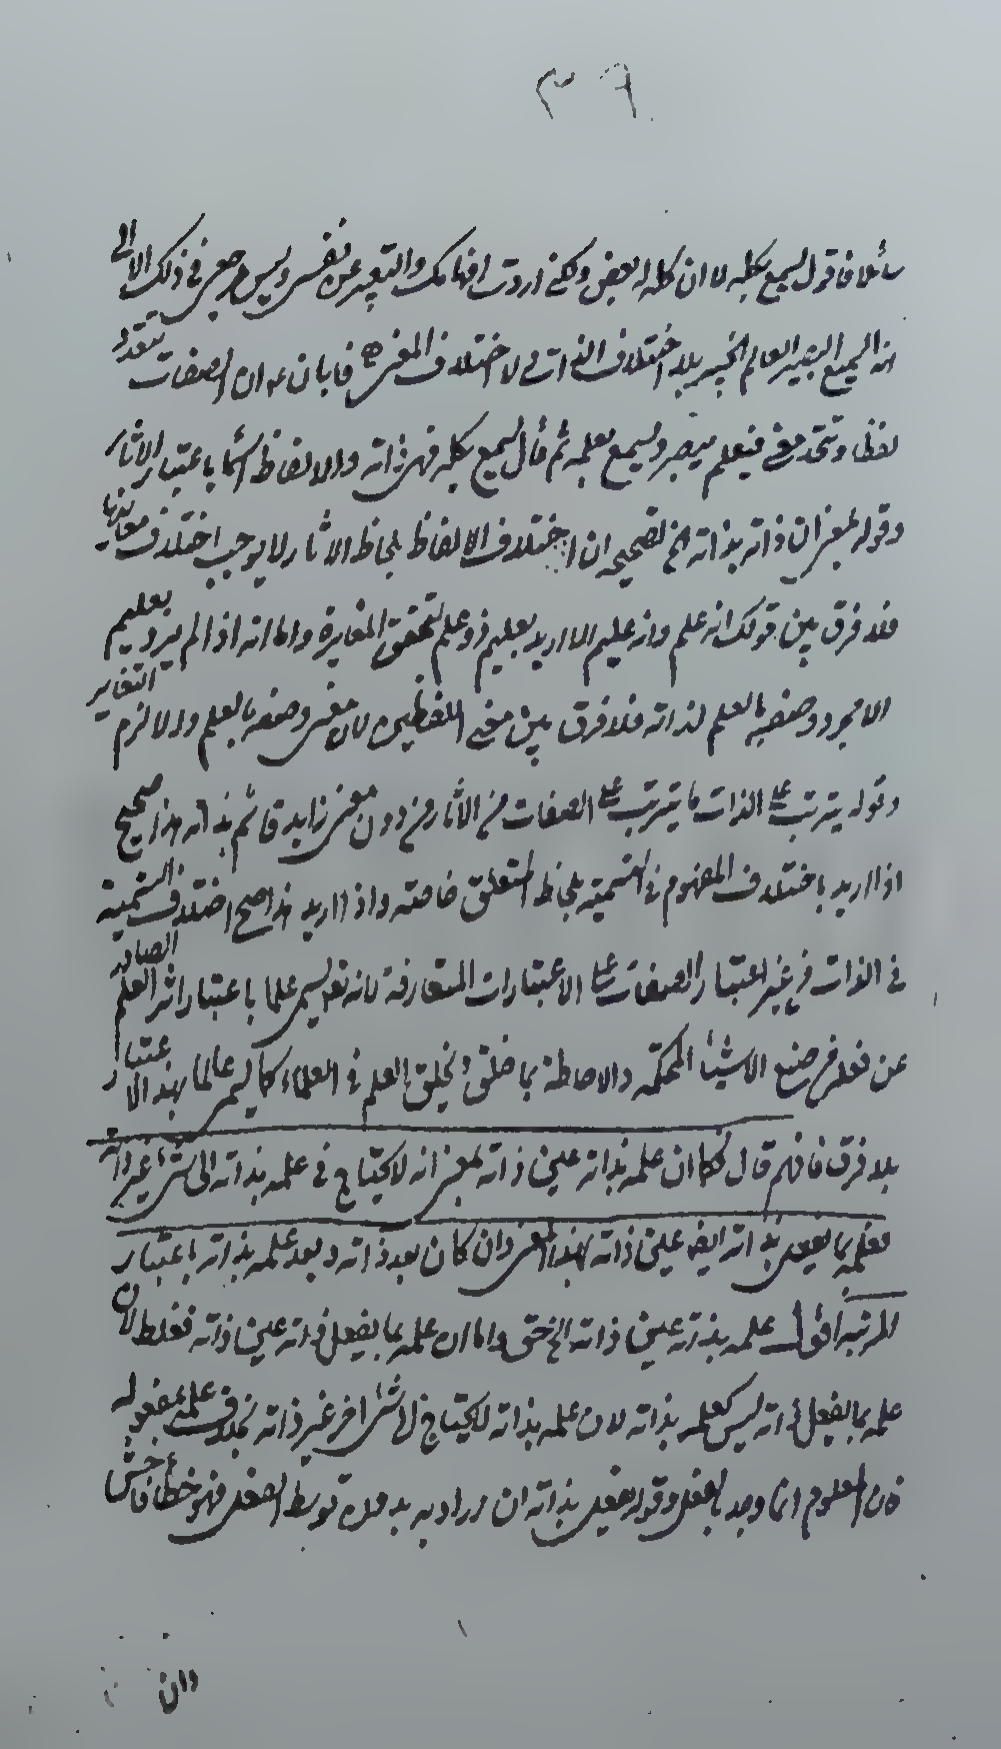 ٣٩
سائلا فاقول يسمع بكله لا ان كله له بعض ولكني اردت افهامك والتعبير عن نفسي وليس مرجعي في ذلك الا الى
انه السميع البصير العالم الخبير بلا اختلاف الذات ولا اختلاف المعنى فابان ان الصفات تتعدد
لفظا وتتحد معنى فيعلم ويبصر ويسمع بعلمه ثم قال يسمع بكله فهي ذاته والالفاظ انما باعتبار الاثار
وقوله بمعنى ان ذاته بذاته الخ تصحيحه ان اختلاف الالفاظ بلحاظ الاثار لا يوجب اختلاف معانيها
فلا فرق بين قولك انه علم وانه عليم الا اريد بعليم ذو علم لتحقق المغايرة واما انه اذا لم يرد بعليم
الا مجرد وصفه بالعلم لذاته فلا فرق بين معنى اللفظين لان معنى وصفه بالعلم والا لزم التغاير
وقوله يترتب على الذات ما يترتب على الصفات من الاثار من دون معنى زايد قائم بذاته هذا صحيح
اذا اريد باختلاف المفهوم في التسمية بلحاظ المتعلق خاصة واذا اريد هذا صح اختلاف التسمية
في الذات في غير اعتبار الصفات على الاعتبارات المتعارفة لانه تع يسمى علما باعتبار اثر العلم الصادر
عن فعله في صنع الاشياء المحكمة والاحاطة بما خلق وبخلق العلم في العلماء كما يسمى عالما بهذا الاعتبار
بلا فرق فافهم قال فكما ان علمه بذاته عين ذاته بمعنى انه لا يحتاج في علمه بذاته الى شيء غير ذاته
فعلمه بما يفعل بذاته ايضا عين ذاته بهذا المعنى وان كان بعد ذاته وبعد علمه بذاته باعتبار
المرتبة اقول علمه بذاته عين ذاته الخ حق واما ان علمه بما يفعل ذاته عين ذاته فغلط لان
علمه بما يفعل ذاته ليس كعلمه بذاته لان علمه بذاته لا يحتاج الى شيء اخر غير ذاته بخلاف علمه بمفعوله
فان المعلوم انما وجد بالفعل وقوله يفعل بذاته ان اراد به بدون توسط الفعل فهو خطأ فاحش
وان